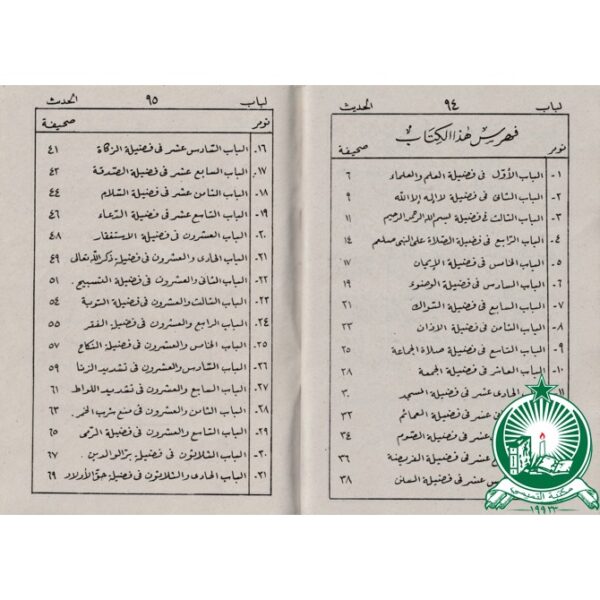 لباب ٩٤ الحدث
فهرس هذا الكتاب
نومر صحيفة
١- الباب الأول فى فضيلة العلم والعلماء ٦
٢- الباب الثانى فى فضيلة لا اله الا الله ٩
٣- الباب الثالث فى فضيلة بسم الله الرحمن الرحيم ١١
٤- الباب الرابع فى فضيلة الصلاة على النبى صلعم ١٤
٥- الباب الخامس فى فضيلة الإيمان ١٧
٦- الباب السادس فى فضيلة الوضوء ١٩
٧- الباب السابع فى فضيلة السواك ٢١
٨- الباب الثامن فى فضيلة الاذان ٢٣
٩- الباب التاسع فى فضيلة صلاة الجماعة ٢٥
١٠- الباب العاشر فى فضيلة الجمعة ٢٨
الحادى عشر فى فضيلة المسجد ٣٠
عشر فى فضيلة العمائم ٣٢
عشر فى فضيلة الصوم ٣٤
عشر فى فضيلة الفريضة ٣٦
عشر فى فضيلة السنن ٣٨
لباب ٩٥ الحدث
نومر صحيفة
١٦- الباب السادس عشر فى فضيلة الزكاة ٤١
١٧- الباب السابع عشر فى فضيلة الصدقة ٤٢
١٨- الباب الثامن عشر فى فضيلة السلام ٤٤
١٩- الباب التاسع عشر فى فضيلة الدعاء ٤٦
٢٠- الباب العشرون فى فضيلة الاستغفار ٤٨
٢١- الباب الحادى والعشرون فى فضيلة ذكر الله تعالى ٤٩
٢٢- الباب الثانى والعشرون فى فضيلة التسبيح ٥١
٢٣- الباب الثالث والعشرون فى فضيلة التوبة ٥٤
٢٤- الباب الرابع والعشرون فى فضيلة الفقر ٥٥
٢٥- الباب الخامس والعشرون فى فضيلة النكاح ٥٧
٢٦- الباب السادس والعشرون فى تشديد الزنا ٥٩
٢٧- الباب السابع والعشرون فى تشديد اللواط ٦١
٢٨- الباب الثامن والعشرون فى منع شرب الخمر ٦٣
٢٩- الباب التاسع والعشرون فى فضيلة الرمى ٦٥
٣٠- الباب الثلاثون فى فضيلة بر الوالدين ٦٧
٣١- الباب الحادى والثلاثون فى فضيلة حق الأولاد ٦٩
مكتبة التميمي